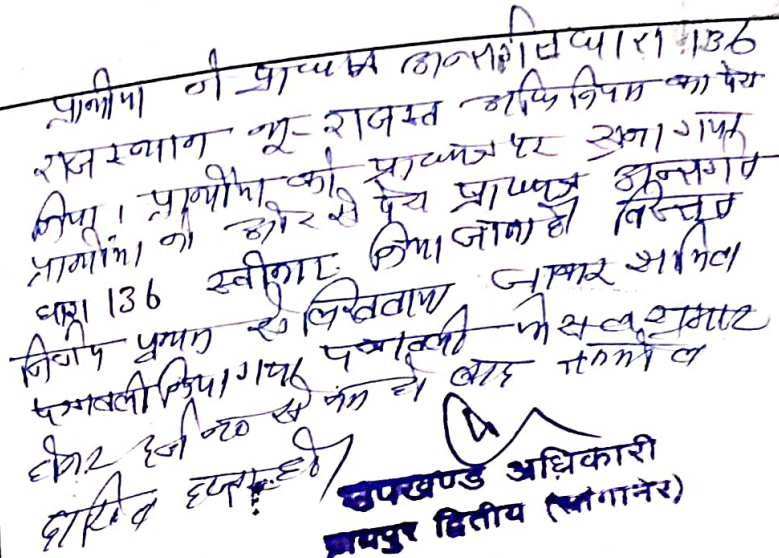 प्रार्थीया ने प्रा०पत्र अन्तर्गत धारा 136
राजस्थान भू-राजस्व अधिनियम का पेश
किया। प्रार्थीया को प्रा०पत्र पर सुना गया
प्रार्थीया की ओर से पेश प्रा०पत्र अन्तर्गत
धारा 136 स्वीकार किया जाता है। विस्तृत
निर्णय पृथक से लिखवाया जाकर शामिल
पत्रावली किया गया पत्रावली फैसल शुमार
होकर दर्ज न० से कम हो बाद तकमील
दाखिल दफ्तर हो।
उपखण्ड अधिकारी
जयपुर द्वितीय (सांगानेर)